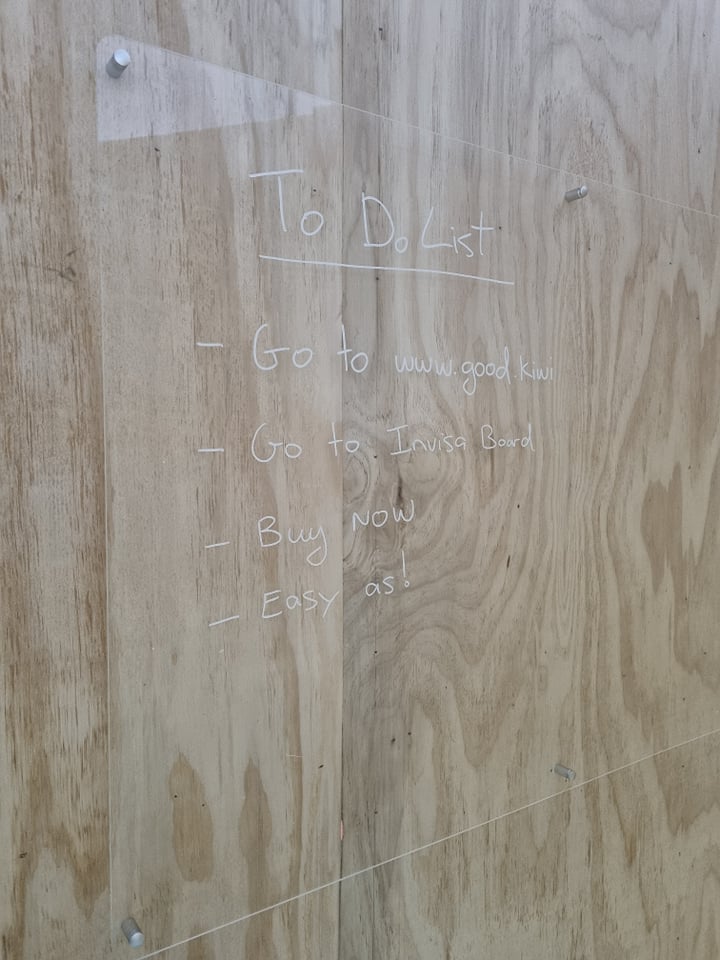 To Do List
- Go to www.good.kiwi
- Go to Invisa Board
- Buy NOW
- Easy as!